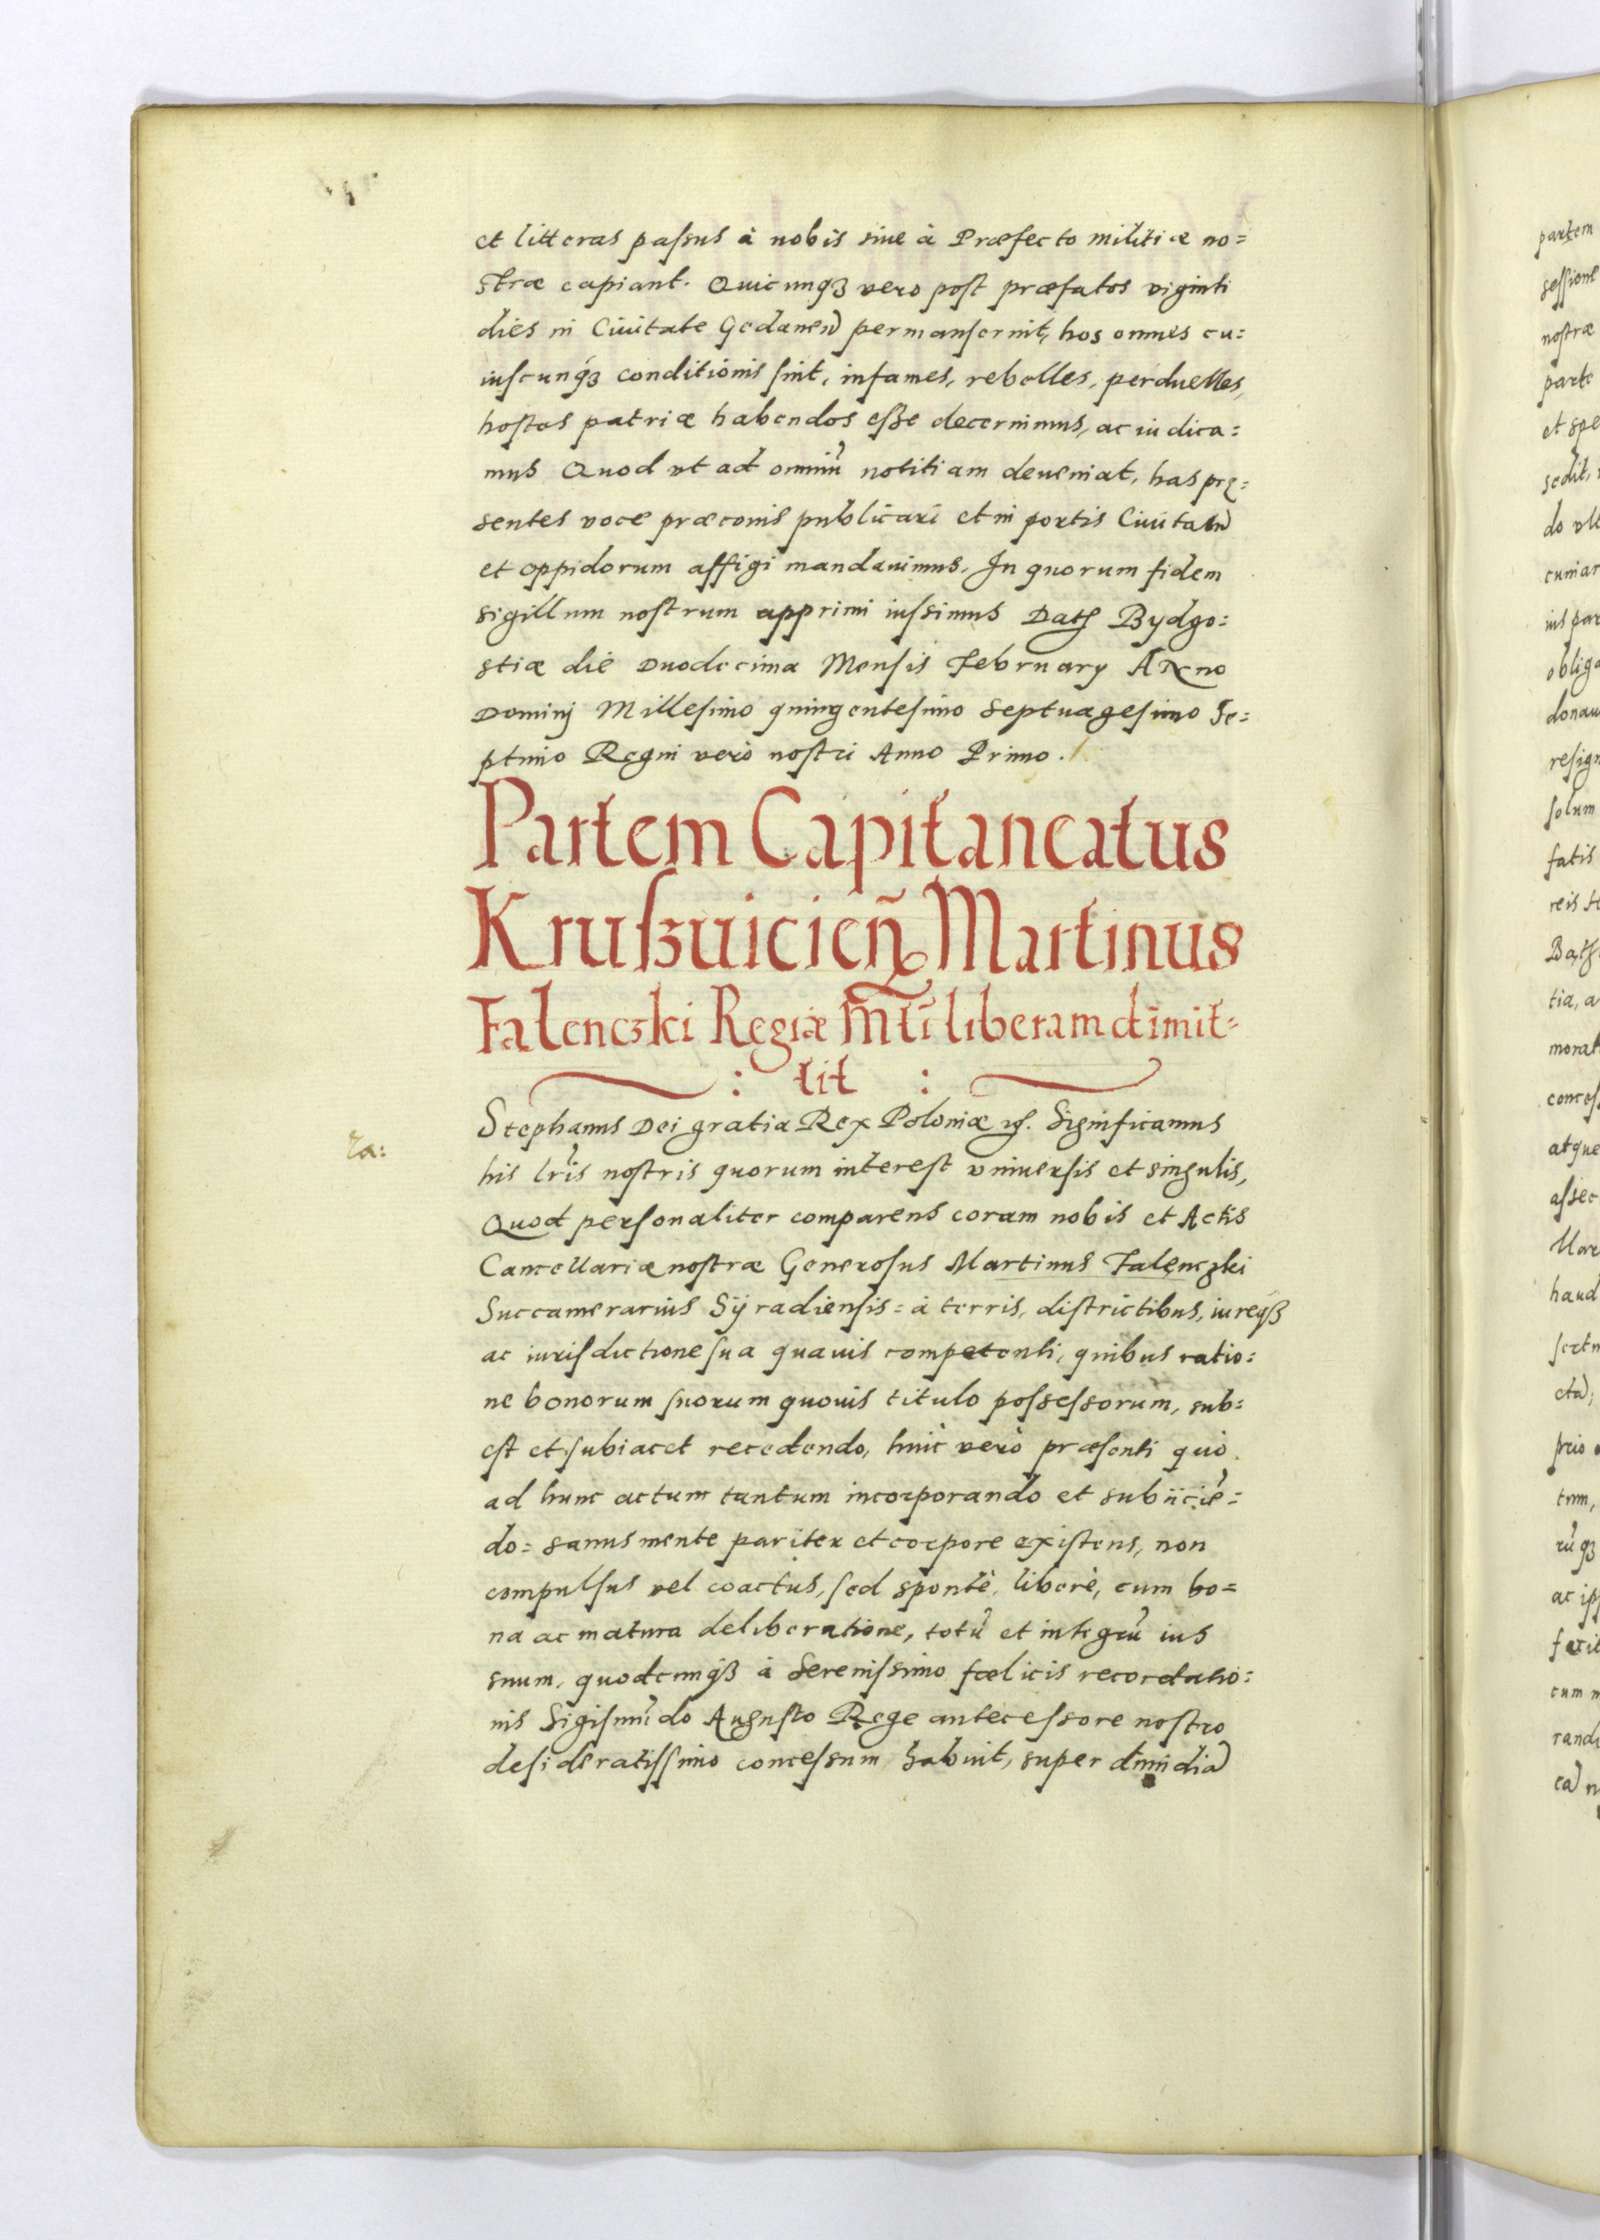 et litteras passus à nobis siue à Præfecto militiæ no=
stræ capiant. Quicunqꝫ vero post præfatos viginti
dies in Ciuitate Gedanen permanserint, hos omnes cu=
iuscunqꝫ conditionis sint, infames, rebelles, perduelles,
hostes patriæ habendos esse decernimus, ac iudica=
mus Quod vt ad omniũ notitiam deueniat, has prę=
sentes voce præconis publicari et in portis Ciuitatũ
et oppidorum affigi mandauimus. In quorum fidem
sigillum nostrum apprimi iussimus Datˢ Bydgo=
stiæ die Duodecima Mensis February Anno
Dominj Millesimo quingentesimo Septuagesimo Se=
ptimo Regni verò nostri Anno Primo.
Partem Capitaneatus
Kruszuicien̄ Martinus
Falenczki Regiæ Mti liberam dimit=
: tit :
Stephanus Dei gratia Rex Poloniæ ꝛc. Significamus
his lr̃is nostris quorum interest vniuersis et singulis,
Quod personaliter comparens coram nobis et Actis
Cancellariæ nostræ Generosus Martinus Falęnczki
Succamerarius Syradiensis = à terris, districtibus, iureqꝫ
ac iurisdictione sua quauis competenti, quibus ratio=
ne bonorum suorum quouis titulo possessorum, sub=
est et subiacet recedendo, huic verò præsenti quò
ad hunc actum tantum incorporando et subiiciẽ=
do = sanus mente pariter et corpore existens, non
compulsus vel coactus, sed spontè, liberè, cum bo=
na ac matura deliberatione, totũ et integrũ ius
suum, quodcunqꝫ à Serenissimo fœlicis recordatio=
nis Sigismũdo Augusto Rege antecessore nostro
desideratissimo concessum habuit, super dimidiã